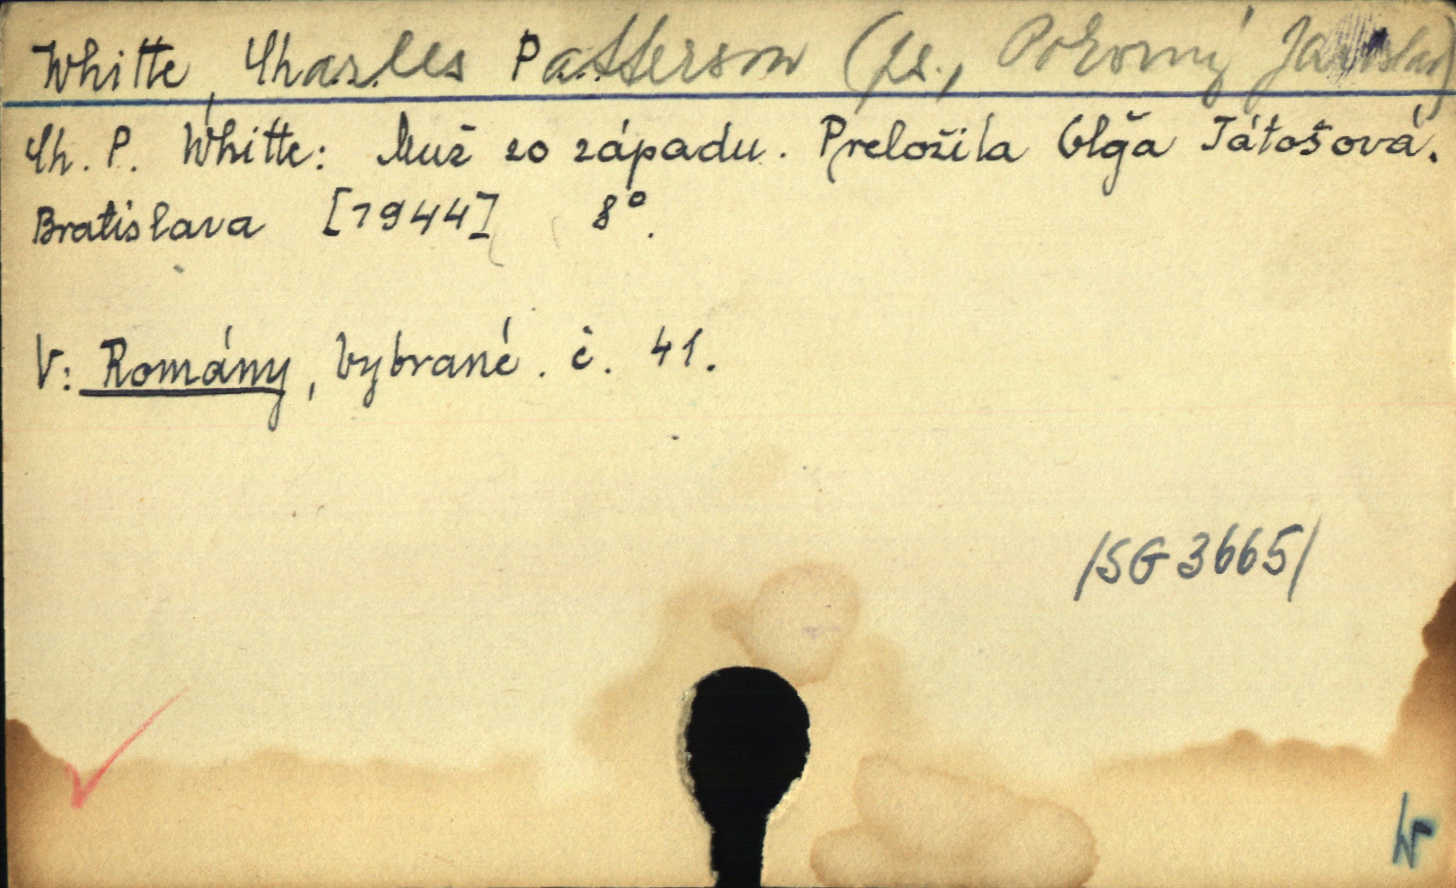 Whitte, Charles Patterson (ps., Pokorný Jaroslav)
Ch. P. Whitte: Muž zo západu. Preložila Olga Tátošová.
Bratislava [1944] 8°.
V: Romány, vybrané. č. 41.
/SG 3665/
W